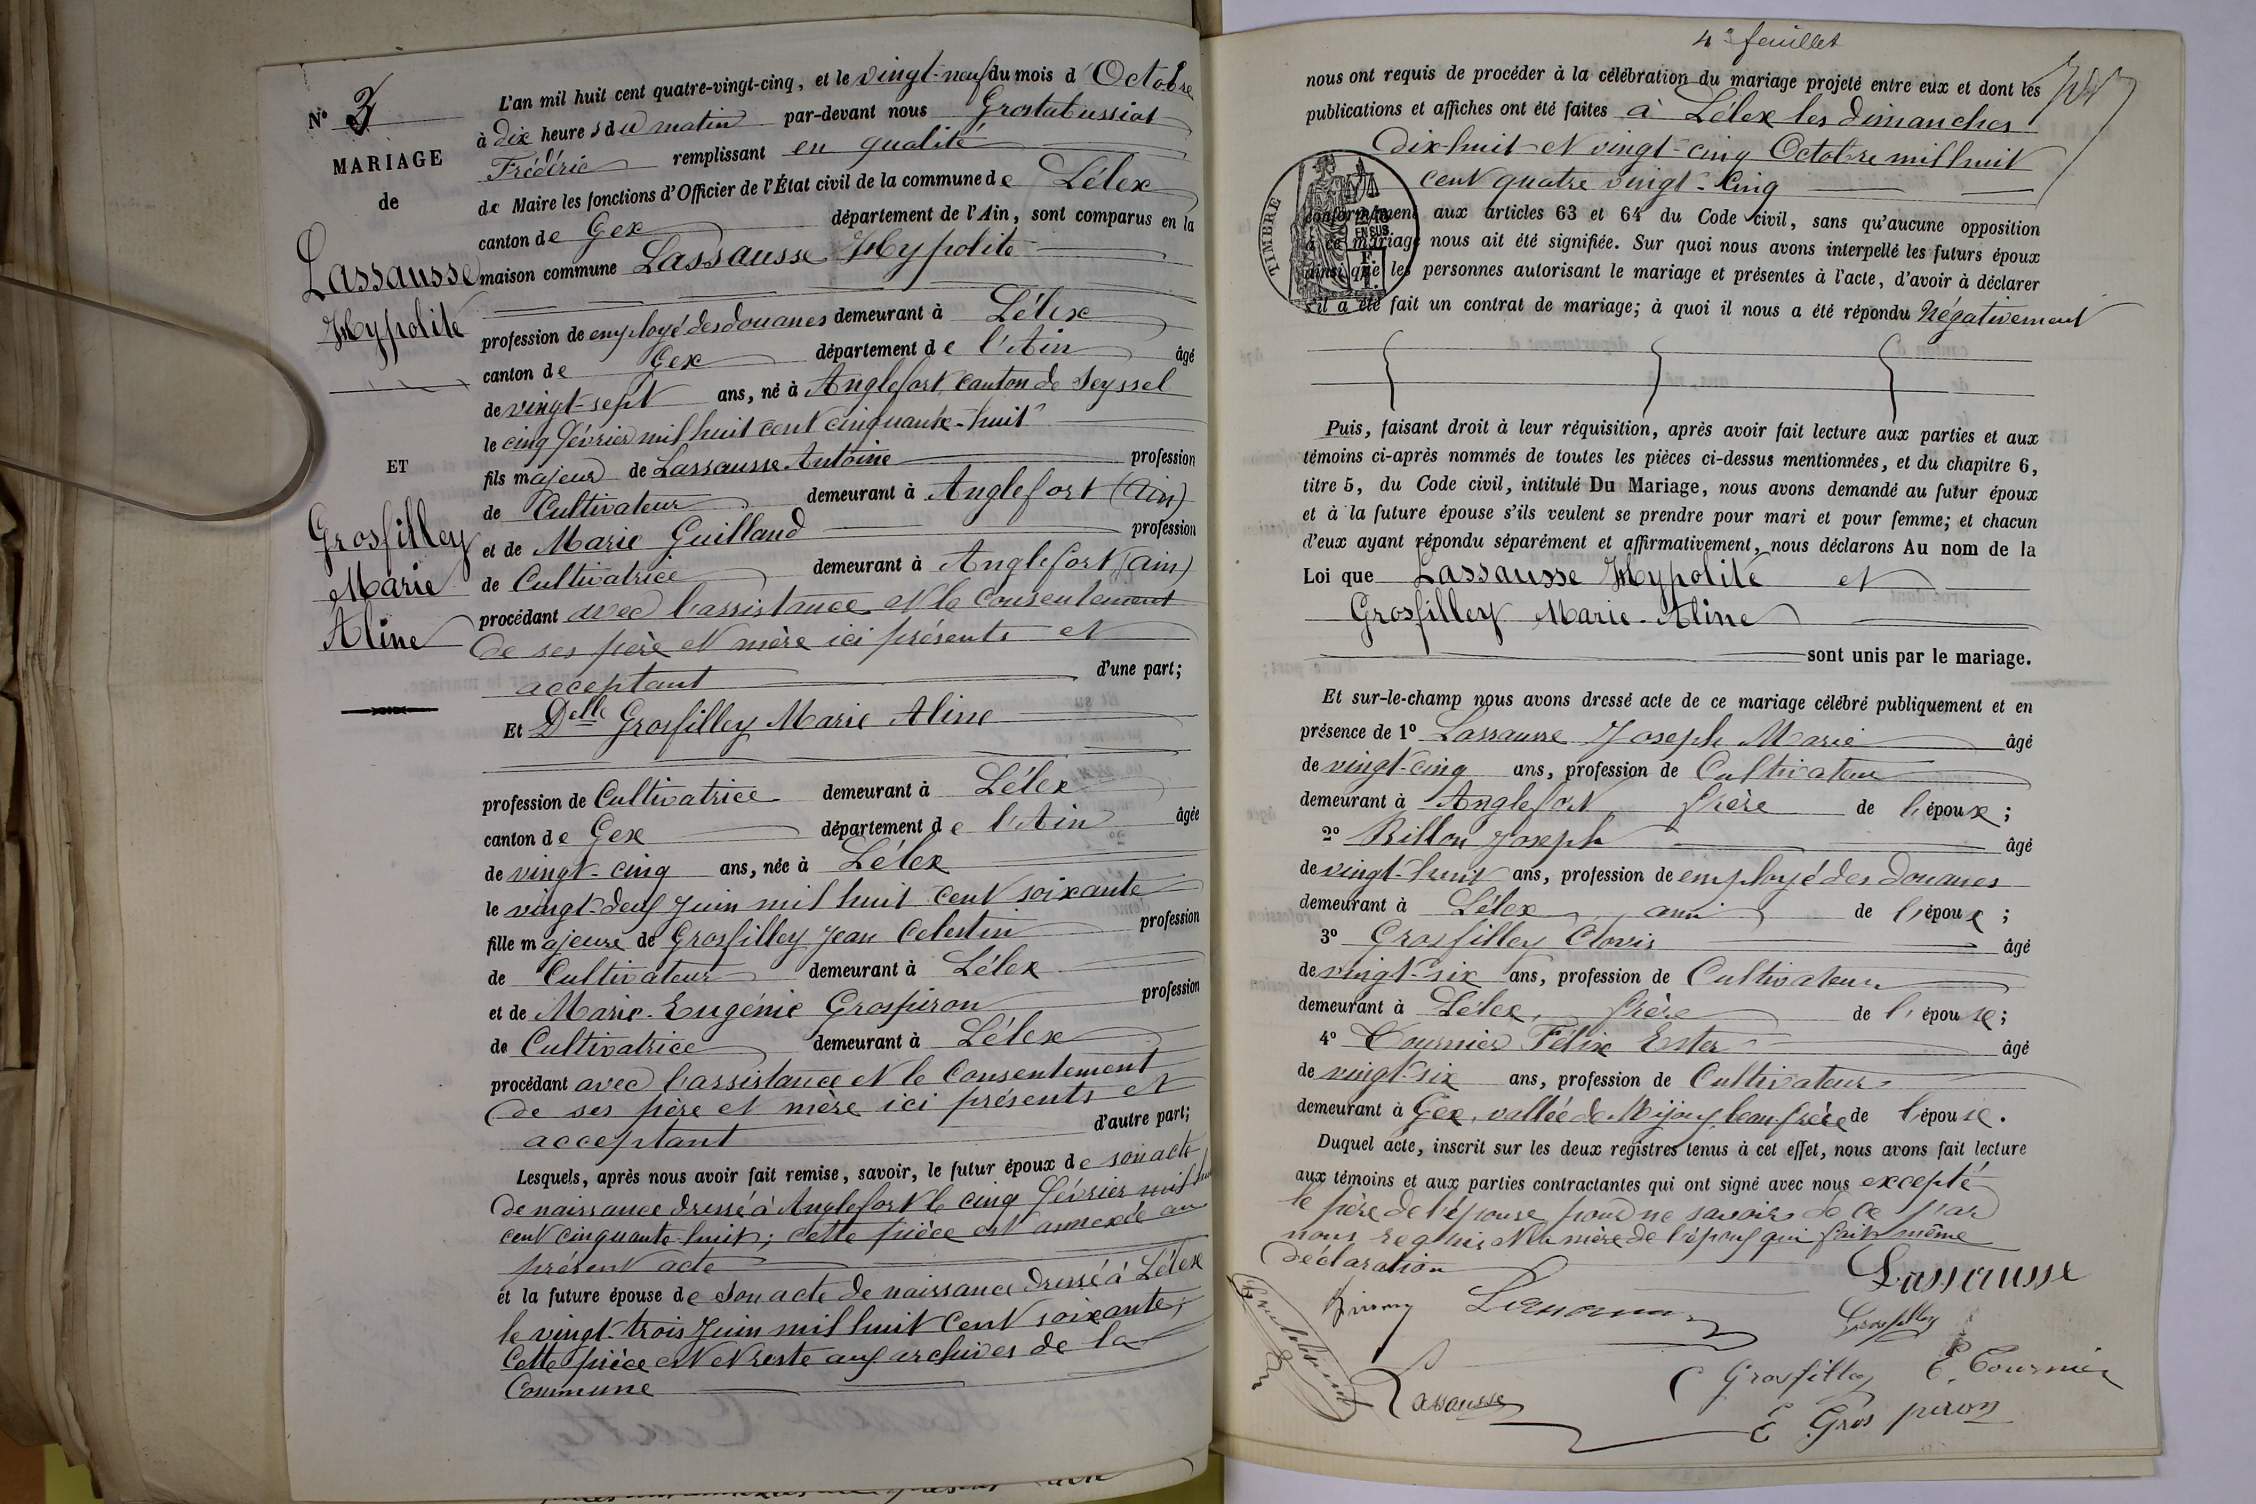 N° 3
MARIAGE
de
Lassausse
Hypolite
ET
Grosfilley
Marie
Aline
L'an mil huit cent quatre-vingt-cinq, et le vingt-neuf du mois d'Octobre
à dix heures du matin par-devant nous Grostabussiat
Frédéric remplissant en qualité
de Maire les fonctions d'Officier de l'État civil de la commune de Lélex
canton de Gex département de l'Ain, sont comparus en la
maison commune Lassausse Hypolite
profession de employé des douanes demeurant à Lélex
canton de Gex département de l'Ain âgé
de vingt-sept ans, né à Anglefort, canton de Seyssel
le cinq février mil huit cent cinquante-huit
fils majeur de Lassausse Antoine profession
de Cultivateur demeurant à Anglefort (Ain)
et de Marie Guilland profession
de Cultivatrice demeurant à Anglefort (Ain)
procédant avec l'assistance et le consentement
de ses père et mère ici présents et
acceptant d'une part;
Et Delle Grosfilley Marie Aline
profession de Cultivatrice demeurant à Lélex
canton de Gex département de l'Ain âgée
de vingt-cinq ans, née à Lélex
le vingt-deux Juin mil huit cent soixante
fille majeure de Grosfilley Jean Celestin profession
de Cultivateur demeurant à Lélex
et de Marie-Eugénie Grospiron profession
de Cultivatrice demeurant à Lélex
procédant avec l'assistance et le Consentement
de ses père et mère ici présents et
acceptant d'autre part;
Lesquels, après nous avoir fait remise, savoir, le futur époux de son acte
de naissance dressé à Anglefort le cinq février mil huit
cent cinquante-huit; cette pièce est annexée au
présent acte
et la future épouse de son acte de naissance dressé à Lélex
le vingt-trois Juin mil huit cent soixante;
Cette pièce est et reste aux archives de la
Commune
4e feuillet
nous ont requis de procéder à la célébration du mariage projeté entre eux et dont les
publications et affiches ont été faites à Lélex les dimanches
dix-huit et vingt-cinq Octobre mil huit
cent quatre vingt-cinq
TIMBRE
2/10 EN SUS.
conformément aux articles 63 et 64 du Code civil, sans qu'aucune opposition
à ce mariage nous ait été signifiée. Sur quoi nous avons interpellé les futurs époux
ainsi que les personnes autorisant le mariage et présentes à l'acte, d'avoir à déclarer
s'il a été fait un contrat de mariage; à quoi il nous a été répondu Négativement
Puis, faisant droit à leur réquisition, après avoir fait lecture aux parties et aux
témoins ci-après nommés de toutes les pièces ci-dessus mentionnées, et du chapitre 6,
titre 5, du Code civil, intitulé Du Mariage, nous avons demandé au futur époux
et à la future épouse s'ils veulent se prendre pour mari et pour femme; et chacun
d'eux ayant répondu séparément et affirmativement, nous déclarons Au nom de la
Loi que Lassausse Hypolite et
Grosfilley Marie-Aline
sont unis par le mariage.
Et sur-le-champ nous avons dressé acte de ce mariage célébré publiquement et en
présence de 1° Lassausse Joseph Marie âgé
de vingt-cinq ans, profession de Cultivateur
demeurant à Anglefort frère de l'époux;
2° Billon Joseph âgé
de vingt-huit ans, profession de employé des douanes
demeurant à Lélex, ami de l'époux;
3° Grosfilley Clovis âgé
de vingt-six ans, profession de Cultivateur
demeurant à Lélex, frère de l'épouse;
4° Tournier Félix Ester âgé
de vingt-six ans, profession de Cultivateur
demeurant à Gex, vallée de Mijoux, beau frère de l'épouse.
Duquel acte, inscrit sur les deux registres tenus à cet effet, nous avons fait lecture
aux témoins et aux parties contractantes qui ont signé avec nous excepté
le père de l'épouse pour ne savoir de ce par
nous requis et la mère de l'époux qui fait même
déclaration
Lassausse
Grosfilley
C Grosfilley E. Tournier
Lassausse
E Gros piron